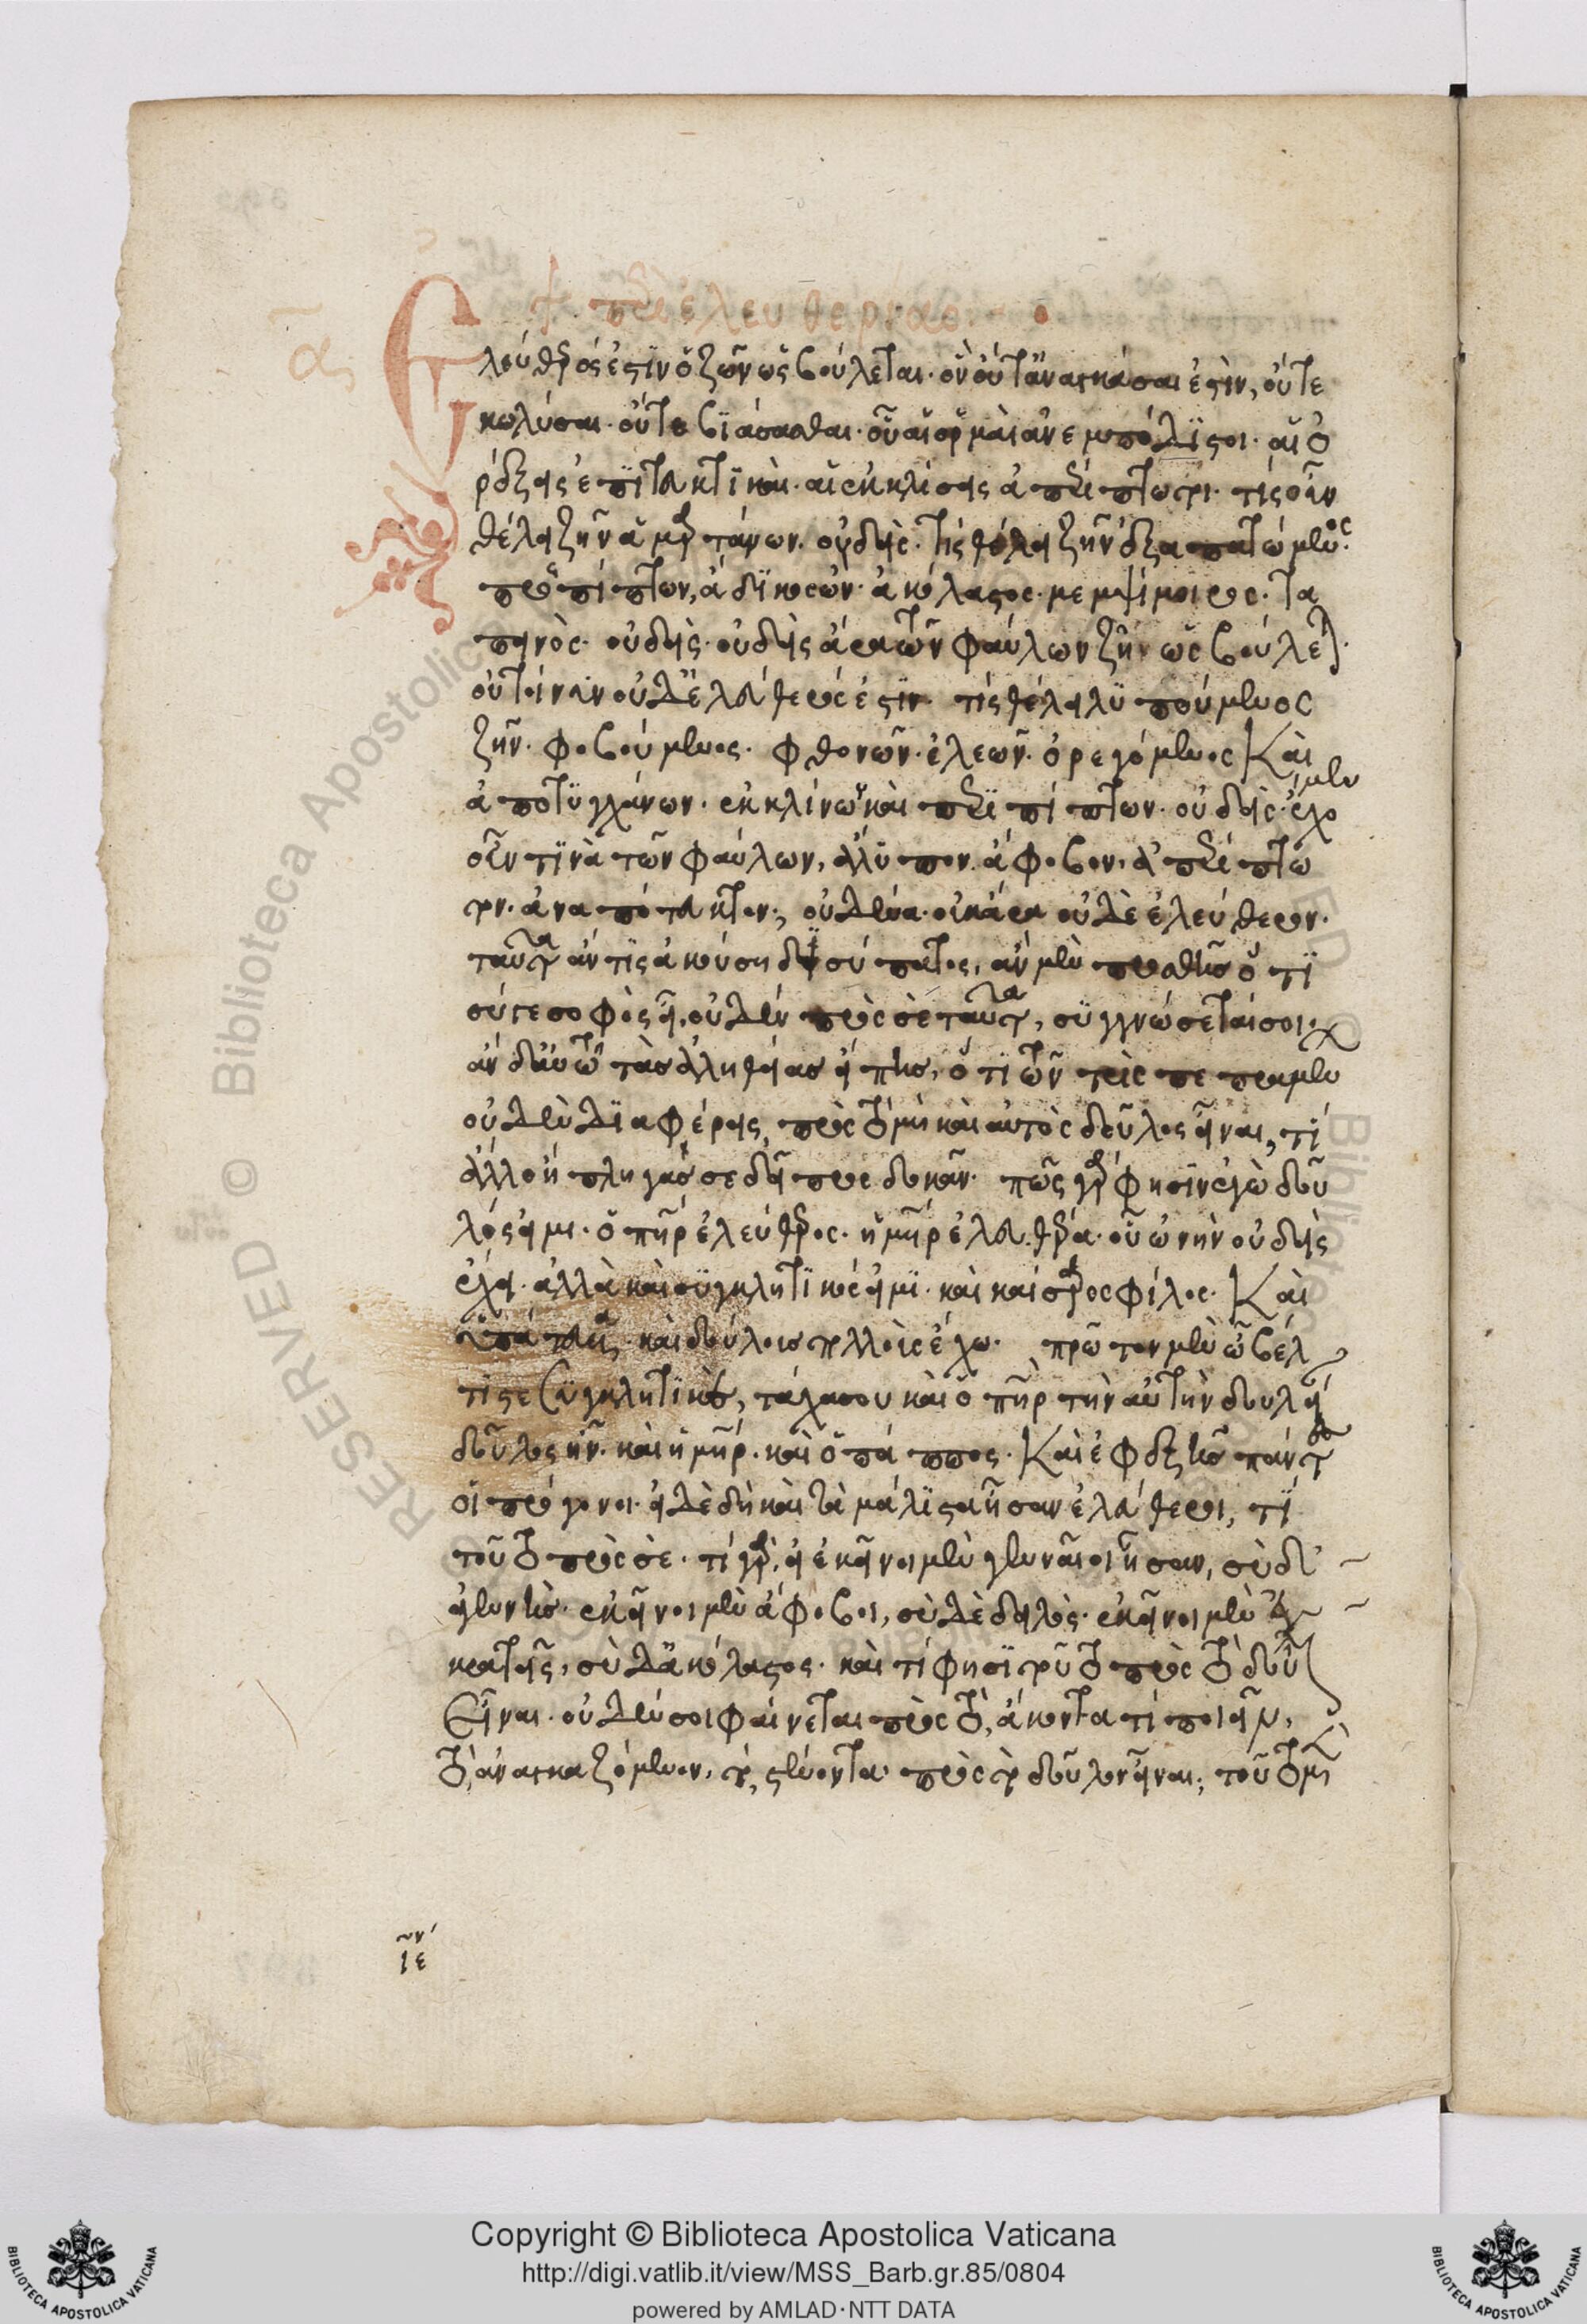 † περὶ ἐλευθερίας.
α
Ἐλεύθερός ἐστιν ὁ ζῶν ὡς βούλεται· ὃν οὔτ' ἀναγκάσαι ἐστὶν, οὔτε
κωλύσαι· οὔτε βιάσασθαι· οὗ αἱ ὁρμαὶ ἀνεμπόδιστοι· αἱ ὀ
ρέξεις ἐπιτευκτικαὶ· αἱ ἐκκλίσεις ἀπερίπτωτοι· τίς οὖν
θέλει ζῆν ἁμαρτάνων· οὐδεὶς· τίς θέλει ζῆν ἐξαπατώμενος·
προπίπτων, ἀδίκος ὢν· ἀκόλαστος· μεμψίμοιρος· τα
πεινὸς· οὐδεὶς· οὐδεὶς ἄρα τῶν φαύλων ζῆν ὡς βούλεται·
οὐ τοίνυν οὐδ' ἐλεύθερός ἐστιν· τίς θέλει λυπούμενος
ζῆν· φοβούμενος· φθονῶν· ἐλεῶν· ὀρεγόμενος καὶ
ἀποτυγχάνων· ἐκκλίνων καὶ περιπίπτων· οὐδεὶς· ἔχομεν
οὖν τινὰ τῶν φαύλων, ἄλυπον· ἄφοβον, ἀπερίπτω
τον· ἀναπότευκτον; οὐδένα· οὐκ ἄρα οὐδὲ ἐλεύθερον·
ταῦτα ἄν τις ἀκούσῃ δισύπατος, ἂν μὲν προσθῇς ὅτι
σύγε σοφὸς εἶ, οὐδὲν πρὸς σὲ ταῦτα, συγγνώσεταί σοι·
ἂν δ' αὐτῷ τὰς ἀληθείας εἴπῃς, ὅτι τῶν τρὶς πεπραμένων
οὐδὲν διαφέρεις πρὸς τὸ μὴ καὶ αὐτὸς δοῦλος εἶναι, τί
ἄλλο ἢ πληγάς σε δεῖ προσδοκᾶν· πῶς γὰρ φησὶν ἐγὼ δοῦ
λός εἰμι· ὁ πατὴρ ἐλεύθερος· ἡ μήτηρ ἐλευθέρα· οὗ ὠνὴν οὐδεὶς
ἔχει· ἀλλὰ καὶ συγκλητικός εἰμι· καὶ καίσαρος φίλος· Καὶ
ὑπάτευκα· καὶ δούλους πολλοὺς ἔχω· πρῶτον μὲν ὦ βέλ
τιστε συγκλητικὲ, τάχα σου καὶ ὁ πατὴρ τὴν αὐτὴν δουλείαν
δοῦλος ἦν· καὶ ἡ μήτηρ· καὶ ὁ πάππος· Καὶ ἐφεξῆς πάντες
οἱ πρόγονοι· εἰ δὲ δὴ καὶ τὰ μάλιστα ἦσαν ἐλεύθεροι, τί
τοῦτο πρὸς σὲ· τί γὰρ, εἰ ἐκεῖνοι μὲν γενναῖοι ἦσαν, σὺ δ'
ἀγεννὴς· ἐκεῖνοι μὲν ἄφοβοι, σὺ δὲ δειλὸς· ἐκεῖνοι μὲν ἐγ
κρατεῖς, σὺ δ' ἀκόλαστος· καὶ τί φησὶ τοῦτο πρὸς τὸ δοῦλον
εἶναι· οὐδέν σοι φαίνεται πρὸς τὸ, ἄκοντα τί ποιεῖν,
τὸ, ἀναγκαζόμενον, τὸ, στένοντα πρὸς τὸ δοῦλον εἶναι; τοῦτο μὲν
ιε
Copyright © Biblioteca Apostolica Vaticana
http://digi.vatlib.it/view/MSS_Barb.gr.85/0804
powered by AMLAD·NTT DATA